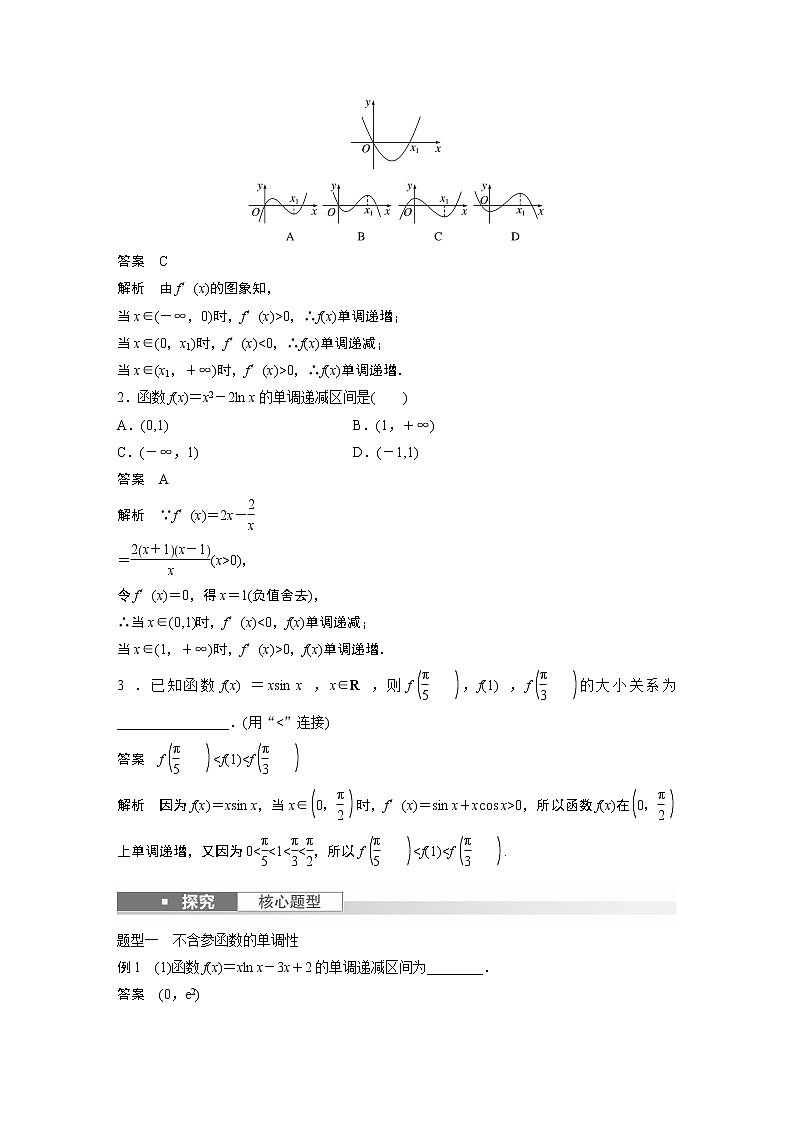 y
O x₁ x
y x₁ O x y O x₁ x y x₁ O x y O x₁ x
A B C D
答案 C
解析 由 f′(x)的图象知，
当 x∈(－∞，0)时，f′(x)>0，∴f(x)单调递增；
当 x∈(0，x₁)时，f′(x)<0，∴f(x)单调递减；
当 x∈(x₁，＋∞)时，f′(x)>0，∴f(x)单调递增．
2．函数 f(x)＝x²－2ln x 的单调递减区间是( )
A．(0,1) B．(1，＋∞)
C．(－∞，1) D．(－1,1)
答案 A
解析 ∵f′(x)＝2x－2/x
＝2(x＋1)(x－1)/x(x>0)，
令 f′(x)＝0，得 x＝1(负值舍去)，
∴当 x∈(0,1)时，f′(x)<0，f(x)单调递减；
当 x∈(1，＋∞)时，f′(x)>0，f(x)单调递增．
3 ．已知函数 f(x) ＝xsin x ，x∈R ，则 f(π/5)，f(1) ，f(π/3)的大小关系为
________________．(用“<”连接)
答案 f(π/5)<f(1)<f(π/3)
解析 因为 f(x)＝xsin x，当 x∈(0，π/2)时，f′(x)＝sin x＋xcos x>0，所以函数 f(x)在(0，π/2)
上单调递增，又因为 0<π/5<1<π/3<π/2，所以 f(π/5)<f(1)<f(π/3).
▪ 探究 核心题型
题型一 不含参函数的单调性
例 1 (1)函数 f(x)＝xln x－3x＋2 的单调递减区间为________．
答案 (0，e²)